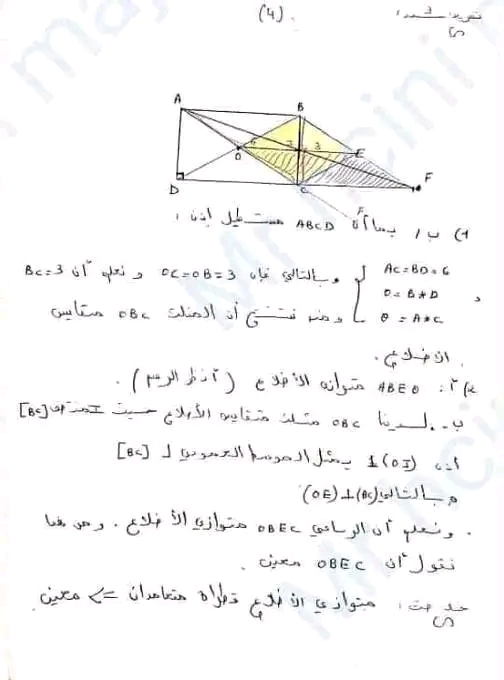 (4)
A
B
O
I
E
D
C
F
1) ب / بما أن ABCD مستطيل إذن :
AC=BD=6
O=B*D
O=A*C
و بالتالي فإن OC=OB=3 و نعلم أن BC=3
و منه نستنتج أن المثلث OBC متقايس
الأضلاع .
2) أ : ABEO متوازي الأضلاع ( أنظر الرسم ) .
ب .. لدينا OBC مثلث متقايس الأضلاع حيث I منتصف [BC]
إذن (OI) يمثل الموسط العمودي لـ [BC]
و بالتالي (OE)⊥(BC)
. و نعلم أن الرباعي OBEC متوازي الأضلاع . و من هنا
نقول أن OBEC معين .
متوازي الأضلاع قطراه متعامدان => معين